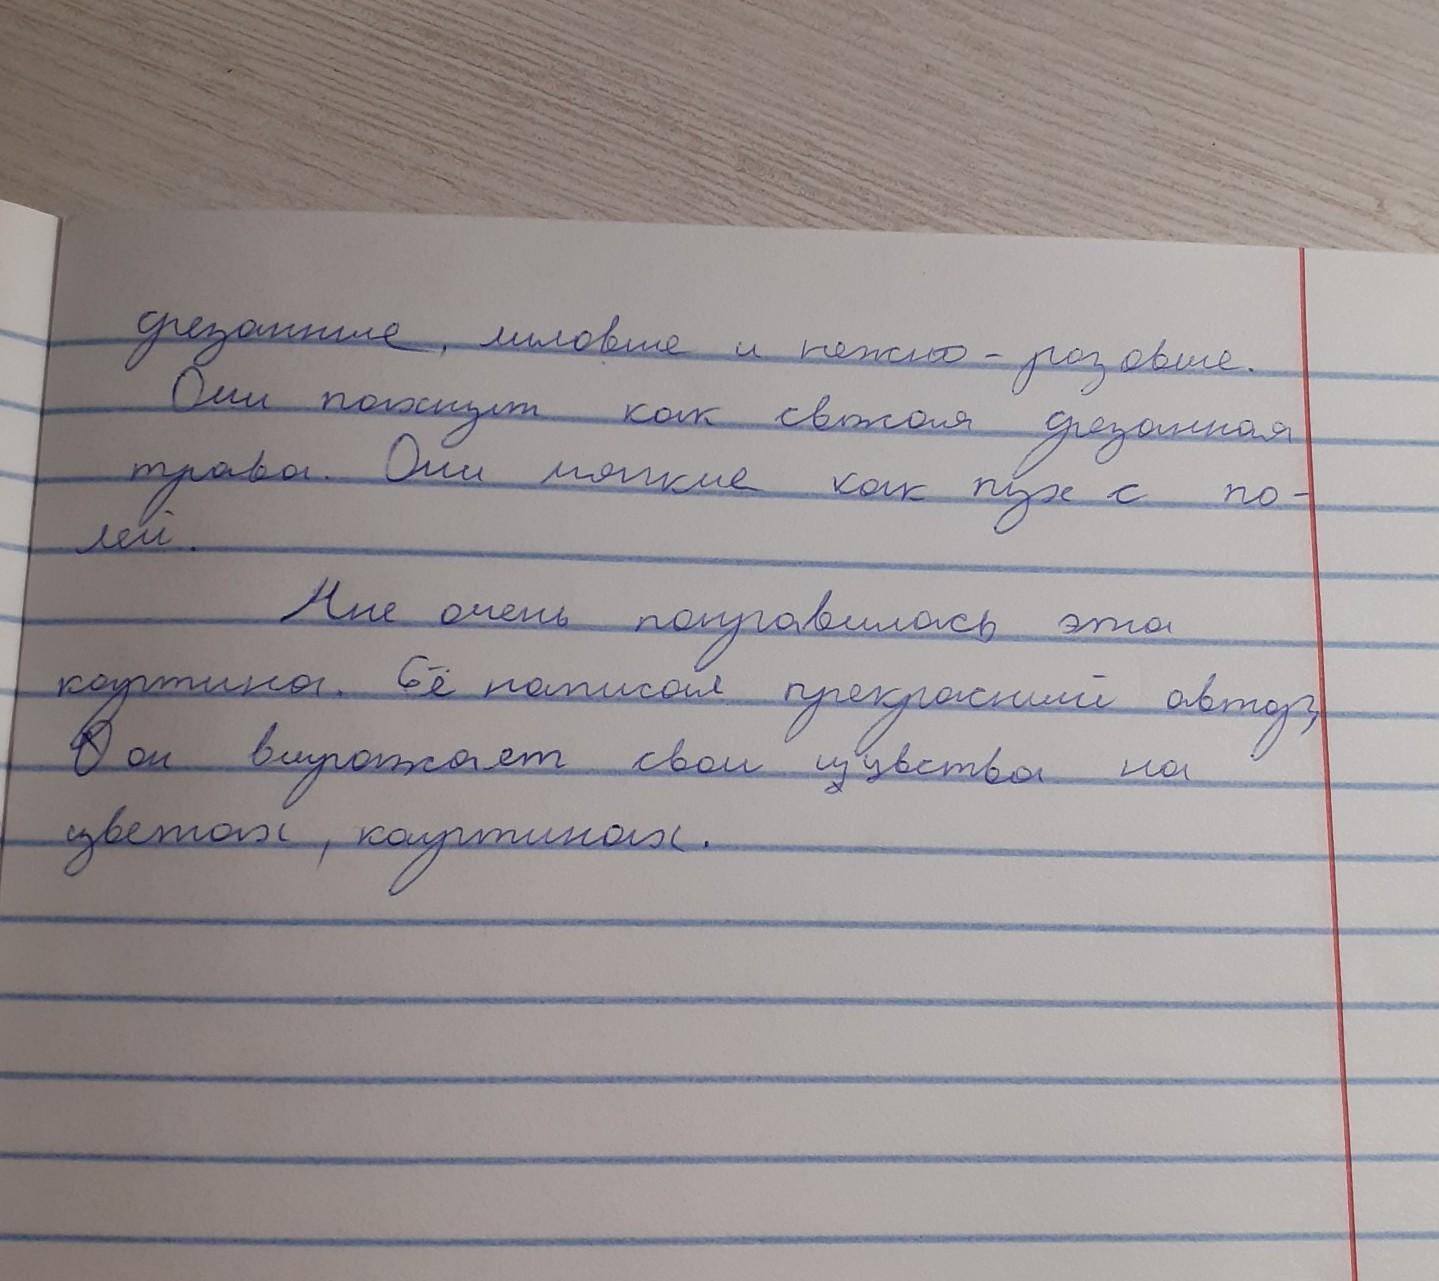 срезанные, лиловые и нежно-розовые.
Они пахнут как свежая срезанная
трава. Они мягкие как пух с по-
лей.
Мне очень понравилась эта
картина. Её написал прекрасный автор,
он выражает свои чувства на
цветах, картинах.